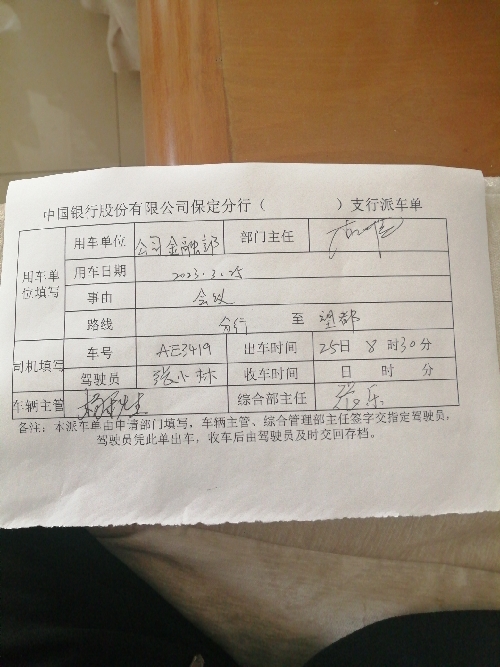 中国银行股份有限公司保定分行（ ）支行派车单
用车单位填写 用车单位 公司金融部 部门主任
用车日期 2023.3.25
事由 会议
路线 分行 至 望都
司机填写 车号 AE3419 出车时间 25日 8时30分
驾驶员 张小林 收车时间 日 时 分
车辆主管 综合部主任 张乐
备注：本派车单由申请部门填写，车辆主管、综合管理部主任签字交指定驾驶员，
驾驶员凭此单出车，收车后由驾驶员及时交回存档。